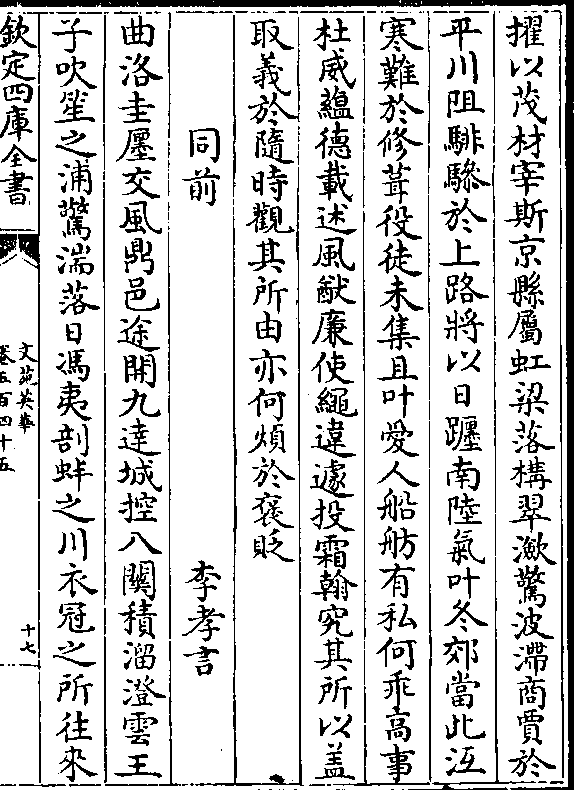 擢以茂材宰斯京縣屬虹梁落構翠瀲驚波滯商賈於
平川阻騑驂於上路將以日躔南陸氣叶冬郊當此沍
寒難於修葺役徒未集且叶愛人船舫有私何乖高事
杜威蘊德載述風猷廉使繩違遽投霜翰究其所以盖
取義於隨時觀其所由亦何煩於褒貶
同前
李孝言
曲洛圭躔交風鼎邑途開九逹城控八關積溜澄雲王
子吹笙之浦驚湍落日馮夷剖蚌之川衣冠之所往來
欽定四庫全書
文苑英華
卷五百四十五
十七